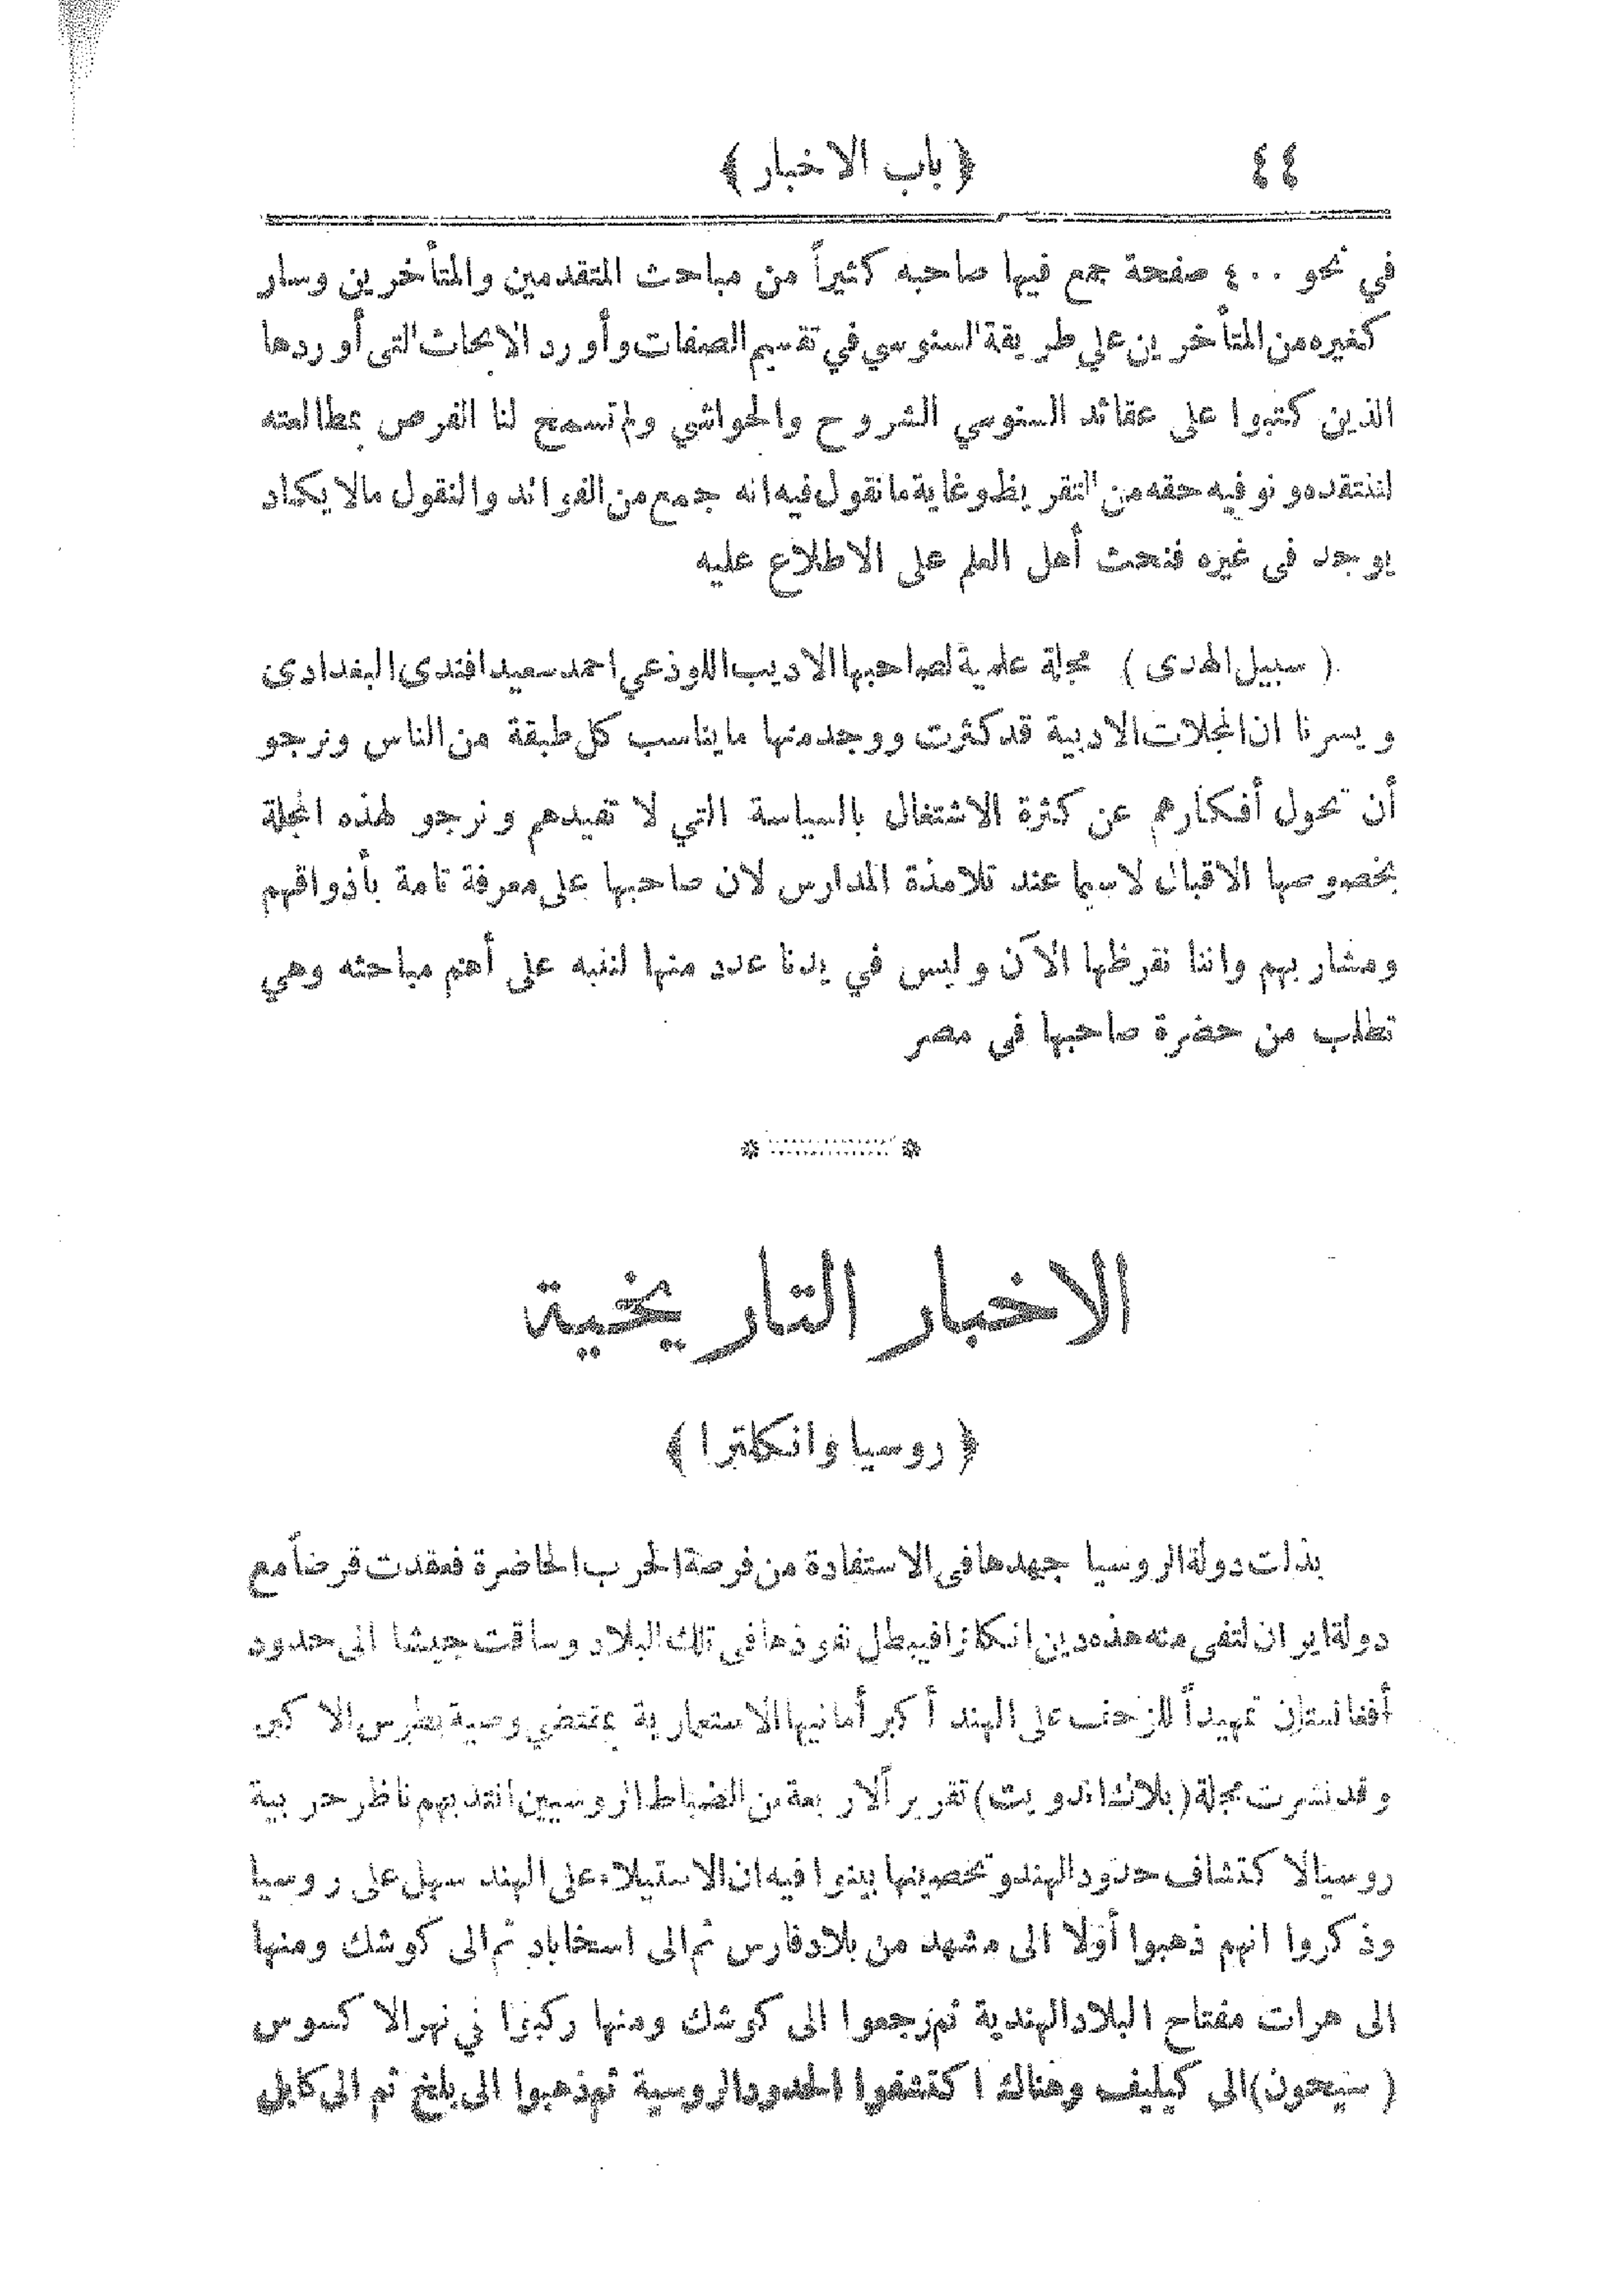 ٤٤ ﴿ باب الاخبار ﴾
في نحو ٤٠٠ صفحة جمع فيها صاحبه كثيراً من مباحث المتقدمين والمتأخرين وسار
كغيره من المتأخرين على طريقة السنوسي في تقسيم الصفات وأورد الابحاث التى أوردها
الذين كتبوا على عقائد السنوسي الشروح والحواشي ولم تسمح لنا الفرص بمطالعته
لننتقده ونوفيه حقه من التقريظ وغاية ما نقول فيه انه جمع من الفوائد والنقول مالا يكاد
يوجد فى غيره فنحث أهل العلم على الاطلاع عليه
( سبيل الهدى ) مجلة علمية لصاحبها الاديب اللوذعي احمد سعيد افندى البغدادى
ويسرنا ان المجلات الادبية قد كثرت ووجد منها ما يناسب كل طبقة من الناس ونرجو
أن تحول أفكارهم عن كثرة الاشتغال بالسياسة التي لا تفيدهم ونرجو لهذه المجلة
بخصوصها الاقبال لاسيما عند تلامذة المدارس لان صاحبها على معرفة تامة بأذواقهم
ومشاربهم واننا نقرظها الآن وليس في يدنا عدد منها لننبه على أهم مباحثه وهي
تطلب من حضرة صاحبها في مصر
الاخبار التاريخية
﴿ روسيا وانكلترا ﴾
بذلت دولة الروسيا جهدها فى الاستفادة من فرصة الحرب الحاضرة فعقدت قرضاً مع
دولة ايران لتفى منه هذه دين انكلترا فيبطل نفوذها فى تلك البلاد وساقت جيشا الى حدود
أفغانستان تمهيداً للزحف على الهند أكبر أمانيها الاستعمارية بمقتضي وصية بطرس الاكبر
وقد نشرت مجلة (بلاك اندويت) تقرير الاربعة من الضباط الروسيين انتدبهم ناظر حربية
روسيا لاكتشاف حدود الهند وتحصينها بينوا فيه ان الاستيلاء على الهند سهل على روسيا
وذكروا انهم ذهبوا أولا الى مشهد من بلاد فارس ثم الى اسخاباد ثم الى كوشك ومنها
الى هرات مفتاح البلاد الهندية ثم رجعوا الى كوشك ومنها ركبوا في نهر الاكسوس
( سيحون) الى كيليف وهناك اكتشفوا الحدود الروسية ثم ذهبوا الى بلخ ثم الى كابل